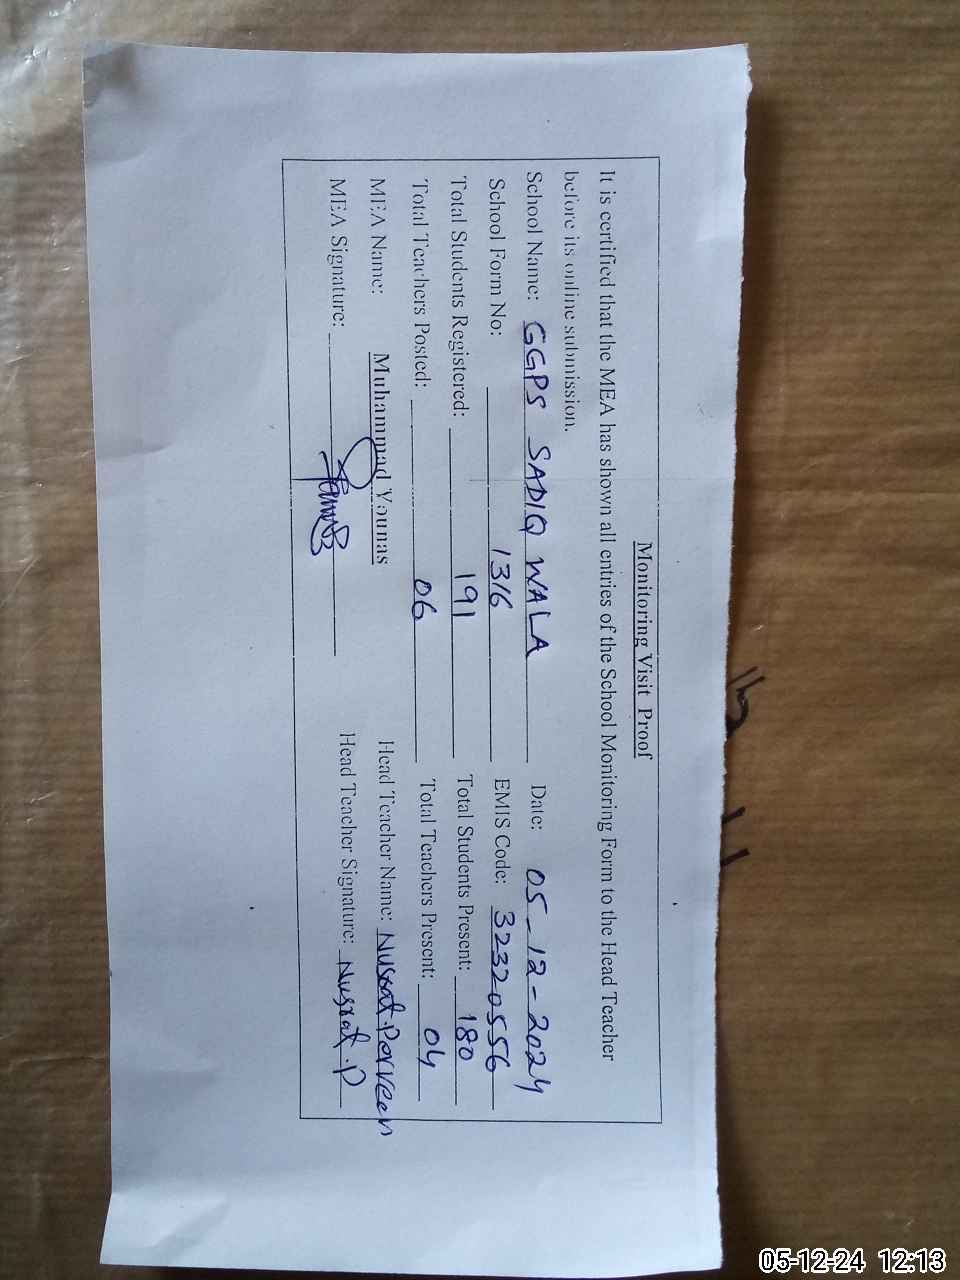 Monitoring Visit Proof
It is certified that the MEA has shown all entries of the School Monitoring Form to the Head Teacher
before its online submission.
School Name: GGPS SADIQ WALA Date: 05-12-2024
School Form No: 1316 EMIS Code: 32320556
Total Students Registered: 191 Total Students Present: 180
Total Teachers Posted: 06 Total Teachers Present: 04
MEA Name: Muhammad Younas Head Teacher Name: Nusrat Parveen
MEA Signature: Head Teacher Signature: Nusrat.P
05-12-24 12:13